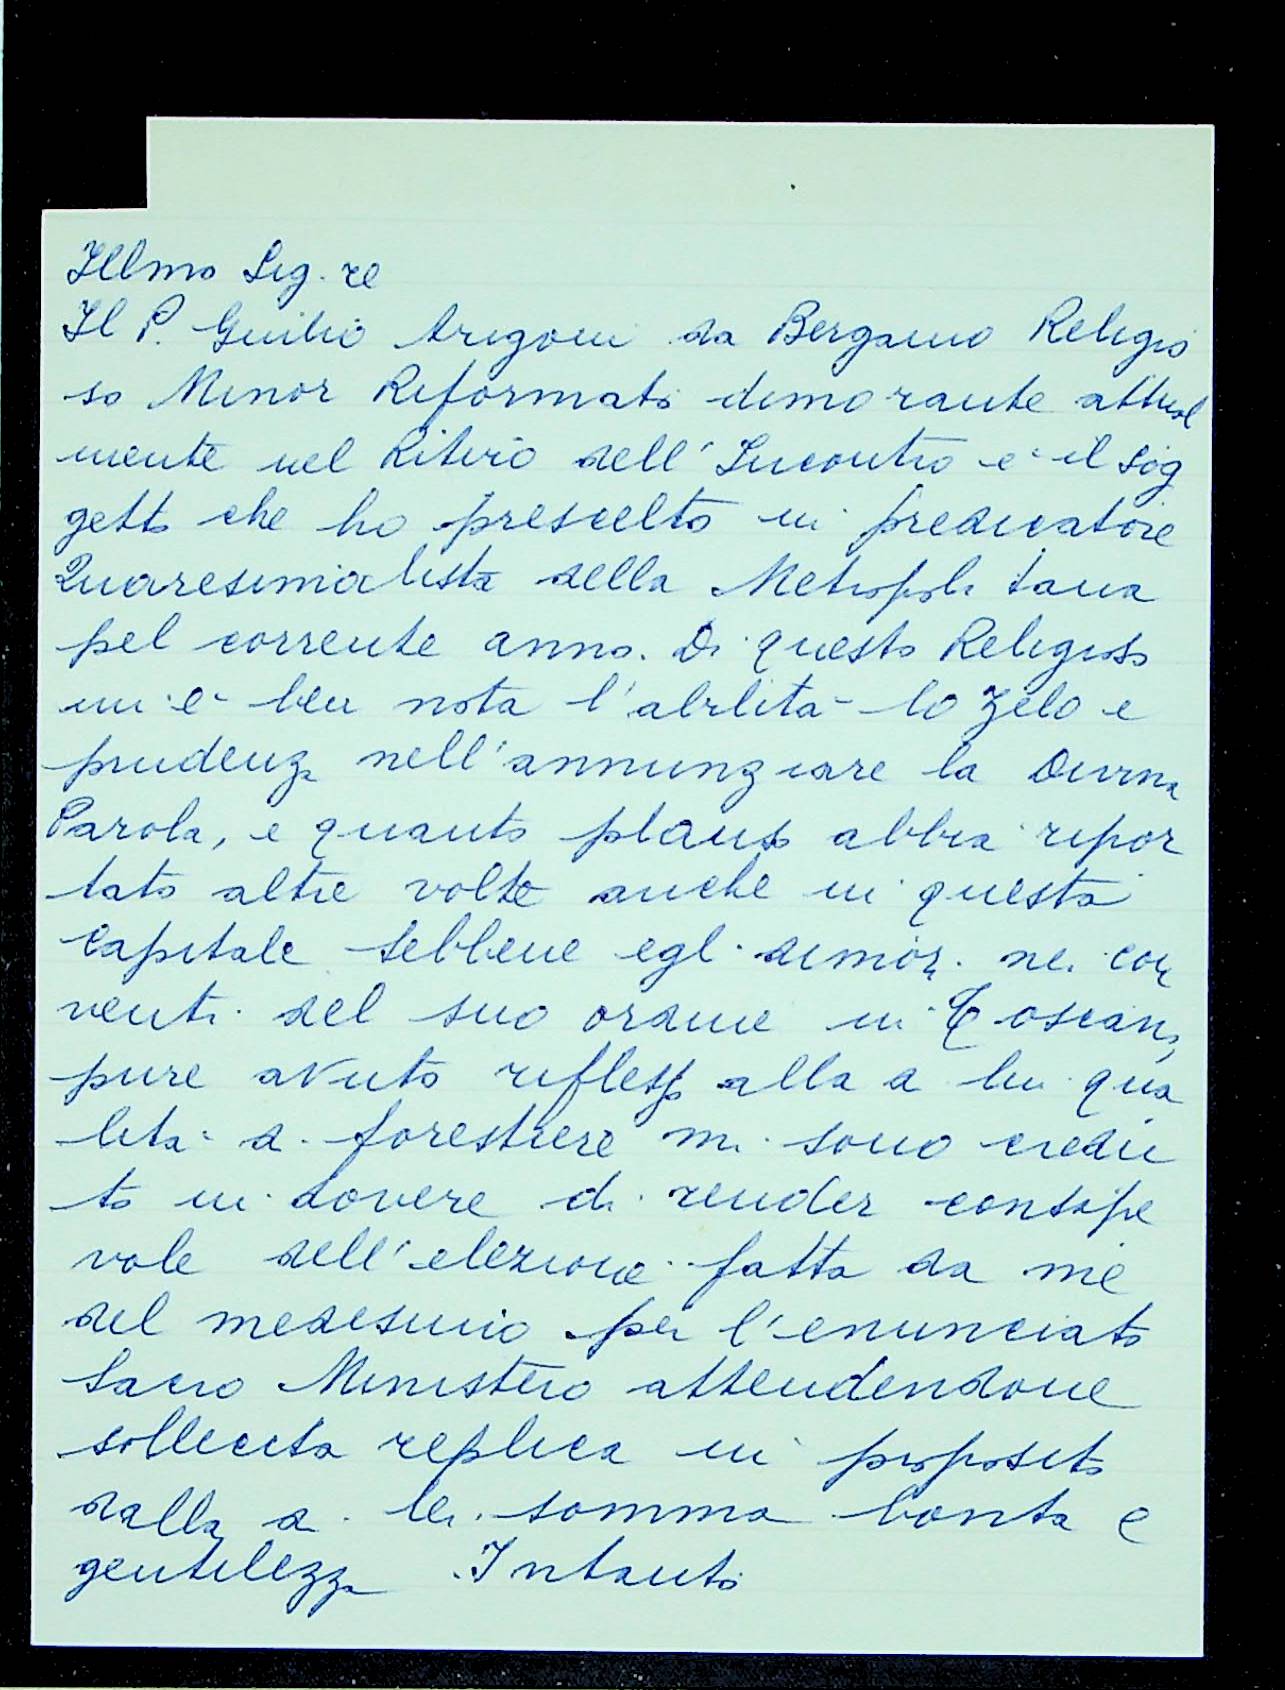 Illmo Sig.re
Il P. Giulio Arigoni da Bergamo Religio
so Minor Riformato dimorante attual
mente nel Ritiro dell'Incontro e' il sog
getto che ho prescelto in predicatore
Quaresimalista della Metropolitana
pel corrente anno. Di questo Religioso
mi e' ben nota l'abilita' lo zelo e
prudenza nell'annunziare la Divina
Parola, e quanto plauso abbia ripor
tato altre volte anche in questa
Capitale sebbene egli dimori nei con
venti del suo ordine in Toscana,
pure avuto riflesso alla di lui qua
lita' di forestiere mi sono credu
to in dovere di render consape
vole dell'elezione fatta da me
del medesimo per l'enunciato
Sacro Ministero attendendone
sollecita replica in proposito
dalla di lei somma bonta e
gentilezza Intanto